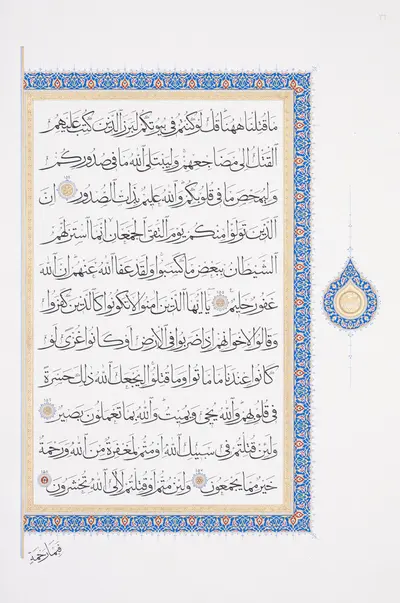 ٣٦
ما قتلنا ههنا قل لو كنتم في بيوتكم لبرز الذين كتب عليهم
القتل الى مضاجعهم وليبتلي الله ما في صدوركم
وليمحص ما في قلوبكم والله عليم بذات الصدور ١٥٤ ان
الذين تولوا منكم يوم التقى الجمعان انما استزلهم
الشيطان ببعض ما كسبوا ولقد عفا الله عنهم ان الله
غفور حليم ١٥٥ يا ايها الذين امنوا لا تكونوا كالذين كفروا
وقالوا لاخوانهم اذا ضربوا في الارض او كانوا غزى لو
كانوا عندنا ما ماتوا وما قتلوا ليجعل الله ذلك حسرة
في قلوبهم والله يحيي ويميت والله بما تعملون بصير ١٥٦
ولئن قتلتم في سبيل الله او متم لمغفرة من الله ورحمة
خير مما يجمعون ١٥٧ ولئن متم او قتلتم لالى الله تحشرون ١٥٨
فبما رحمة